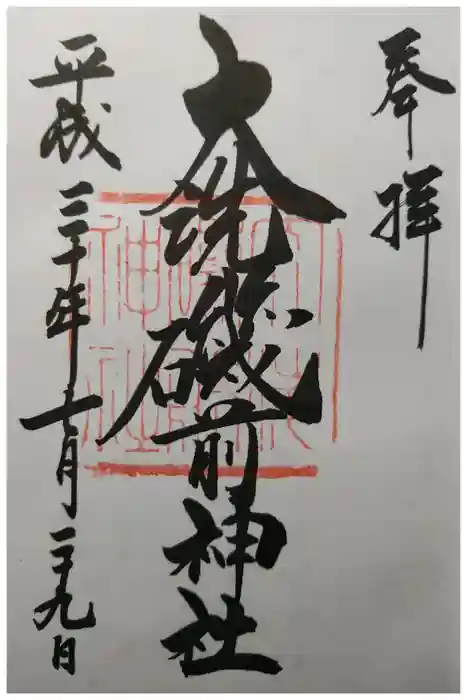 奉拝
大洗磯前神社
平成三十年七月二十九日